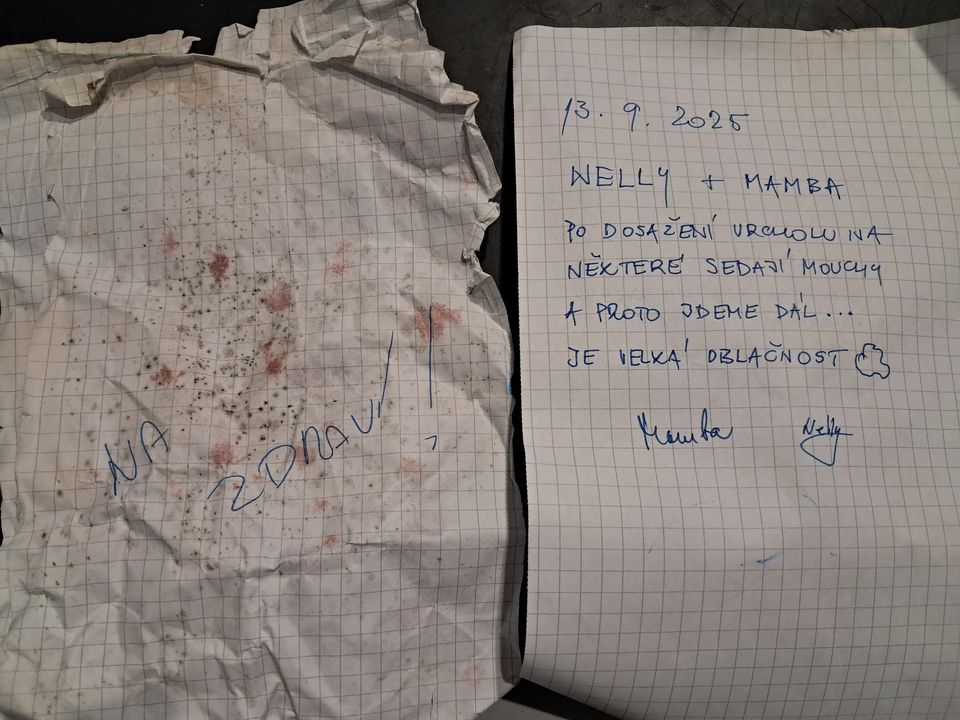 NA
ZDRAVÍ!
13. 9. 2025
NELLY + MAMBA
PO DOSAŽENÍ VRCHOLU NA
NĚKTERÉ SEDAJÍ MOUCHY
A PROTO JDEME DÁL...
JE VELKÁ OBLAČNOST
Mamba Nelly